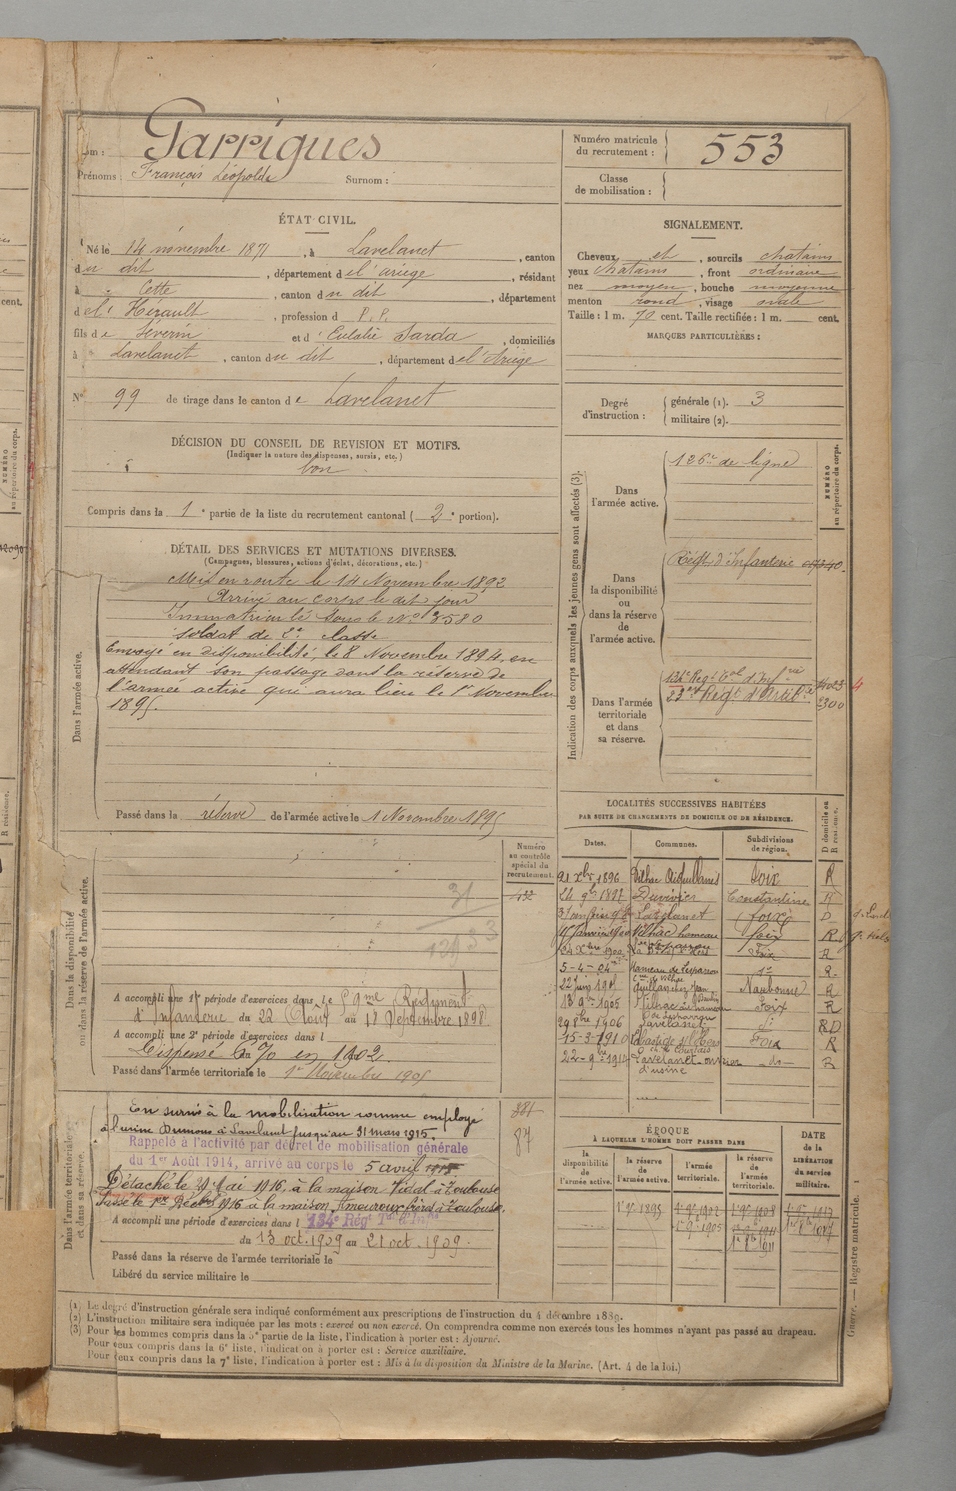 Nom : Garrigues
Prénoms : François Léopold Surnom :
Numéro matricule du recrutement : 553
Classe de mobilisation :
ÉTAT CIVIL.
Né le 14 novembre 1871, à Lavelanet, canton
du dit, département de l'ariège, résidant
à Cette, canton du dit, département
de l'Hérault, profession d P. P.
fils de Séverin et d'Eulalie Sarda, domiciliés
à Lavelanet, canton du dit, département de l'Ariège
N° 99 de tirage dans le canton de Lavelanet
SIGNALEMENT.
Cheveux et, sourcils chatains
yeux chatains, front ordinaire
nez moyen, bouche moyenne
menton rond, visage ovale
Taille : 1 m. 70 cent. Taille rectifiée : 1 m. cent.
MARQUES PARTICULIÈRES :
Degré d'instruction : générale (1). 3
militaire (2).
DÉCISION DU CONSEIL DE REVISION ET MOTIFS.
(Indiquer la nature des dispenses, sursis, etc.)
bon
Compris dans la 1e partie de la liste du recrutement cantonal (2e portion).
DÉTAIL DES SERVICES ET MUTATIONS DIVERSES.
(Campagnes, blessures, actions d'éclat, décorations, etc.)
Dans l'armée active.
Mis en route le 14 Novembre 1892
Arrivé au corps le dit jour
Immatriculé sous le N° 3580
soldat de 2e classe
Envoyé en disponibilité, le 8 Novembre 1894, en
attendant son passage dans la réserve de
l'armée active qui aura lieu le 1er Novembre
1895.
Passé dans la réserve de l'armée active le 1 Novembre 1895
Indication des corps auxquels les jeunes gens sont affectés (3).
NUMÉRO au répertoire du corps.
Dans l'armée active. 126e de ligne
Dans la disponibilité ou dans la réserve de l'armée active. Régt d'Infanterie
Dans l'armée territoriale et dans sa réserve. 134e Régt Tal d'Infrie
23e Régt d'Artie
4
Dans la disponibilité ou dans la réserve de l'armée active.
Numéro au contrôle spécial du recrutement.
132
A accompli une 1re période d'exercices dans le 59me Régiment
d'Infanterie du 22 Août au 18 Septembre 1898
A accompli une 2e période d'exercices dans l
Dispensé du 70 en 1902
Passé dans l'armée territoriale le 1er Novembre 1905
LOCALITÉS SUCCESSIVES HABITÉES
PAR SUITE DE CHANGEMENTS DE DOMICILE OU DE RÉSIDENCE.
Dates. Communes. Subdivisions de région. D domicile ou R résidence.
21 Xbre 1896 Foix R
24 9bre 1897 Duvivier Constantine R
Lavelanet Foix D
hameau Foix R
Foix R
5-4-04 Hameau de Lesparrou do R
22 juin 1905 Narbonne R
13 9bre 1905 Foix R
29 8bre 1906 Lavelanet do RD
15-3-1910 Labastide s/l'Hers Foix R
22-9bre-1914 Lavelanet-ouvrier d'usine do R
Dans l'armée territoriale et dans sa réserve.
En sursis à la mobilisation comme employé
à l'usine Dumons à Lavelanet jusqu'au 31 mars 1915.
Rappelé à l'activité par décret de mobilisation générale
du 1er Août 1914, arrivé au corps le 5 avril 1915
Détaché le 29 Mai 1916, à la maison Vidal à Toulouse
Passé le 1er Décbre 1916 à la maison Amouroux frères à Toulouse.
A accompli une période d'exercices dans l 134e Régt Tal d'Infie
du 13 oct. 1909 au 21 oct. 1909.
Passé dans la réserve de l'armée territoriale le
Libéré du service militaire le
ÉPOQUE
À LAQUELLE L'HOMME DOIT PASSER DANS
la disponibilité de l'armée active. la réserve de l'armée active. l'armée territoriale. la réserve de l'armée territoriale.
DATE de la LIBÉRATION du service militaire.
1er 9bre 1895 1er 9bre 1902 1er 9bre 1908
1er 9bre 1905 1er 9bre 1911
(1) Le degré d'instruction générale sera indiqué conformément aux prescriptions de l'instruction du 4 décembre 1889.
(2) L'instruction militaire sera indiquée par les mots : exercé ou non exercé. On comprendra comme non exercés tous les hommes n'ayant pas passé au drapeau.
(3) Pour les hommes compris dans la 5e partie de la liste, l'indication à porter est : Ajourné.
Pour ceux compris dans la 6e liste, l'indication à porter est : Service auxiliaire.
Pour ceux compris dans la 7e liste, l'indication à porter est : Mis à la disposition du Ministre de la Marine. (Art. 4 de la loi.)
Guerre. — Registre matricule. 1